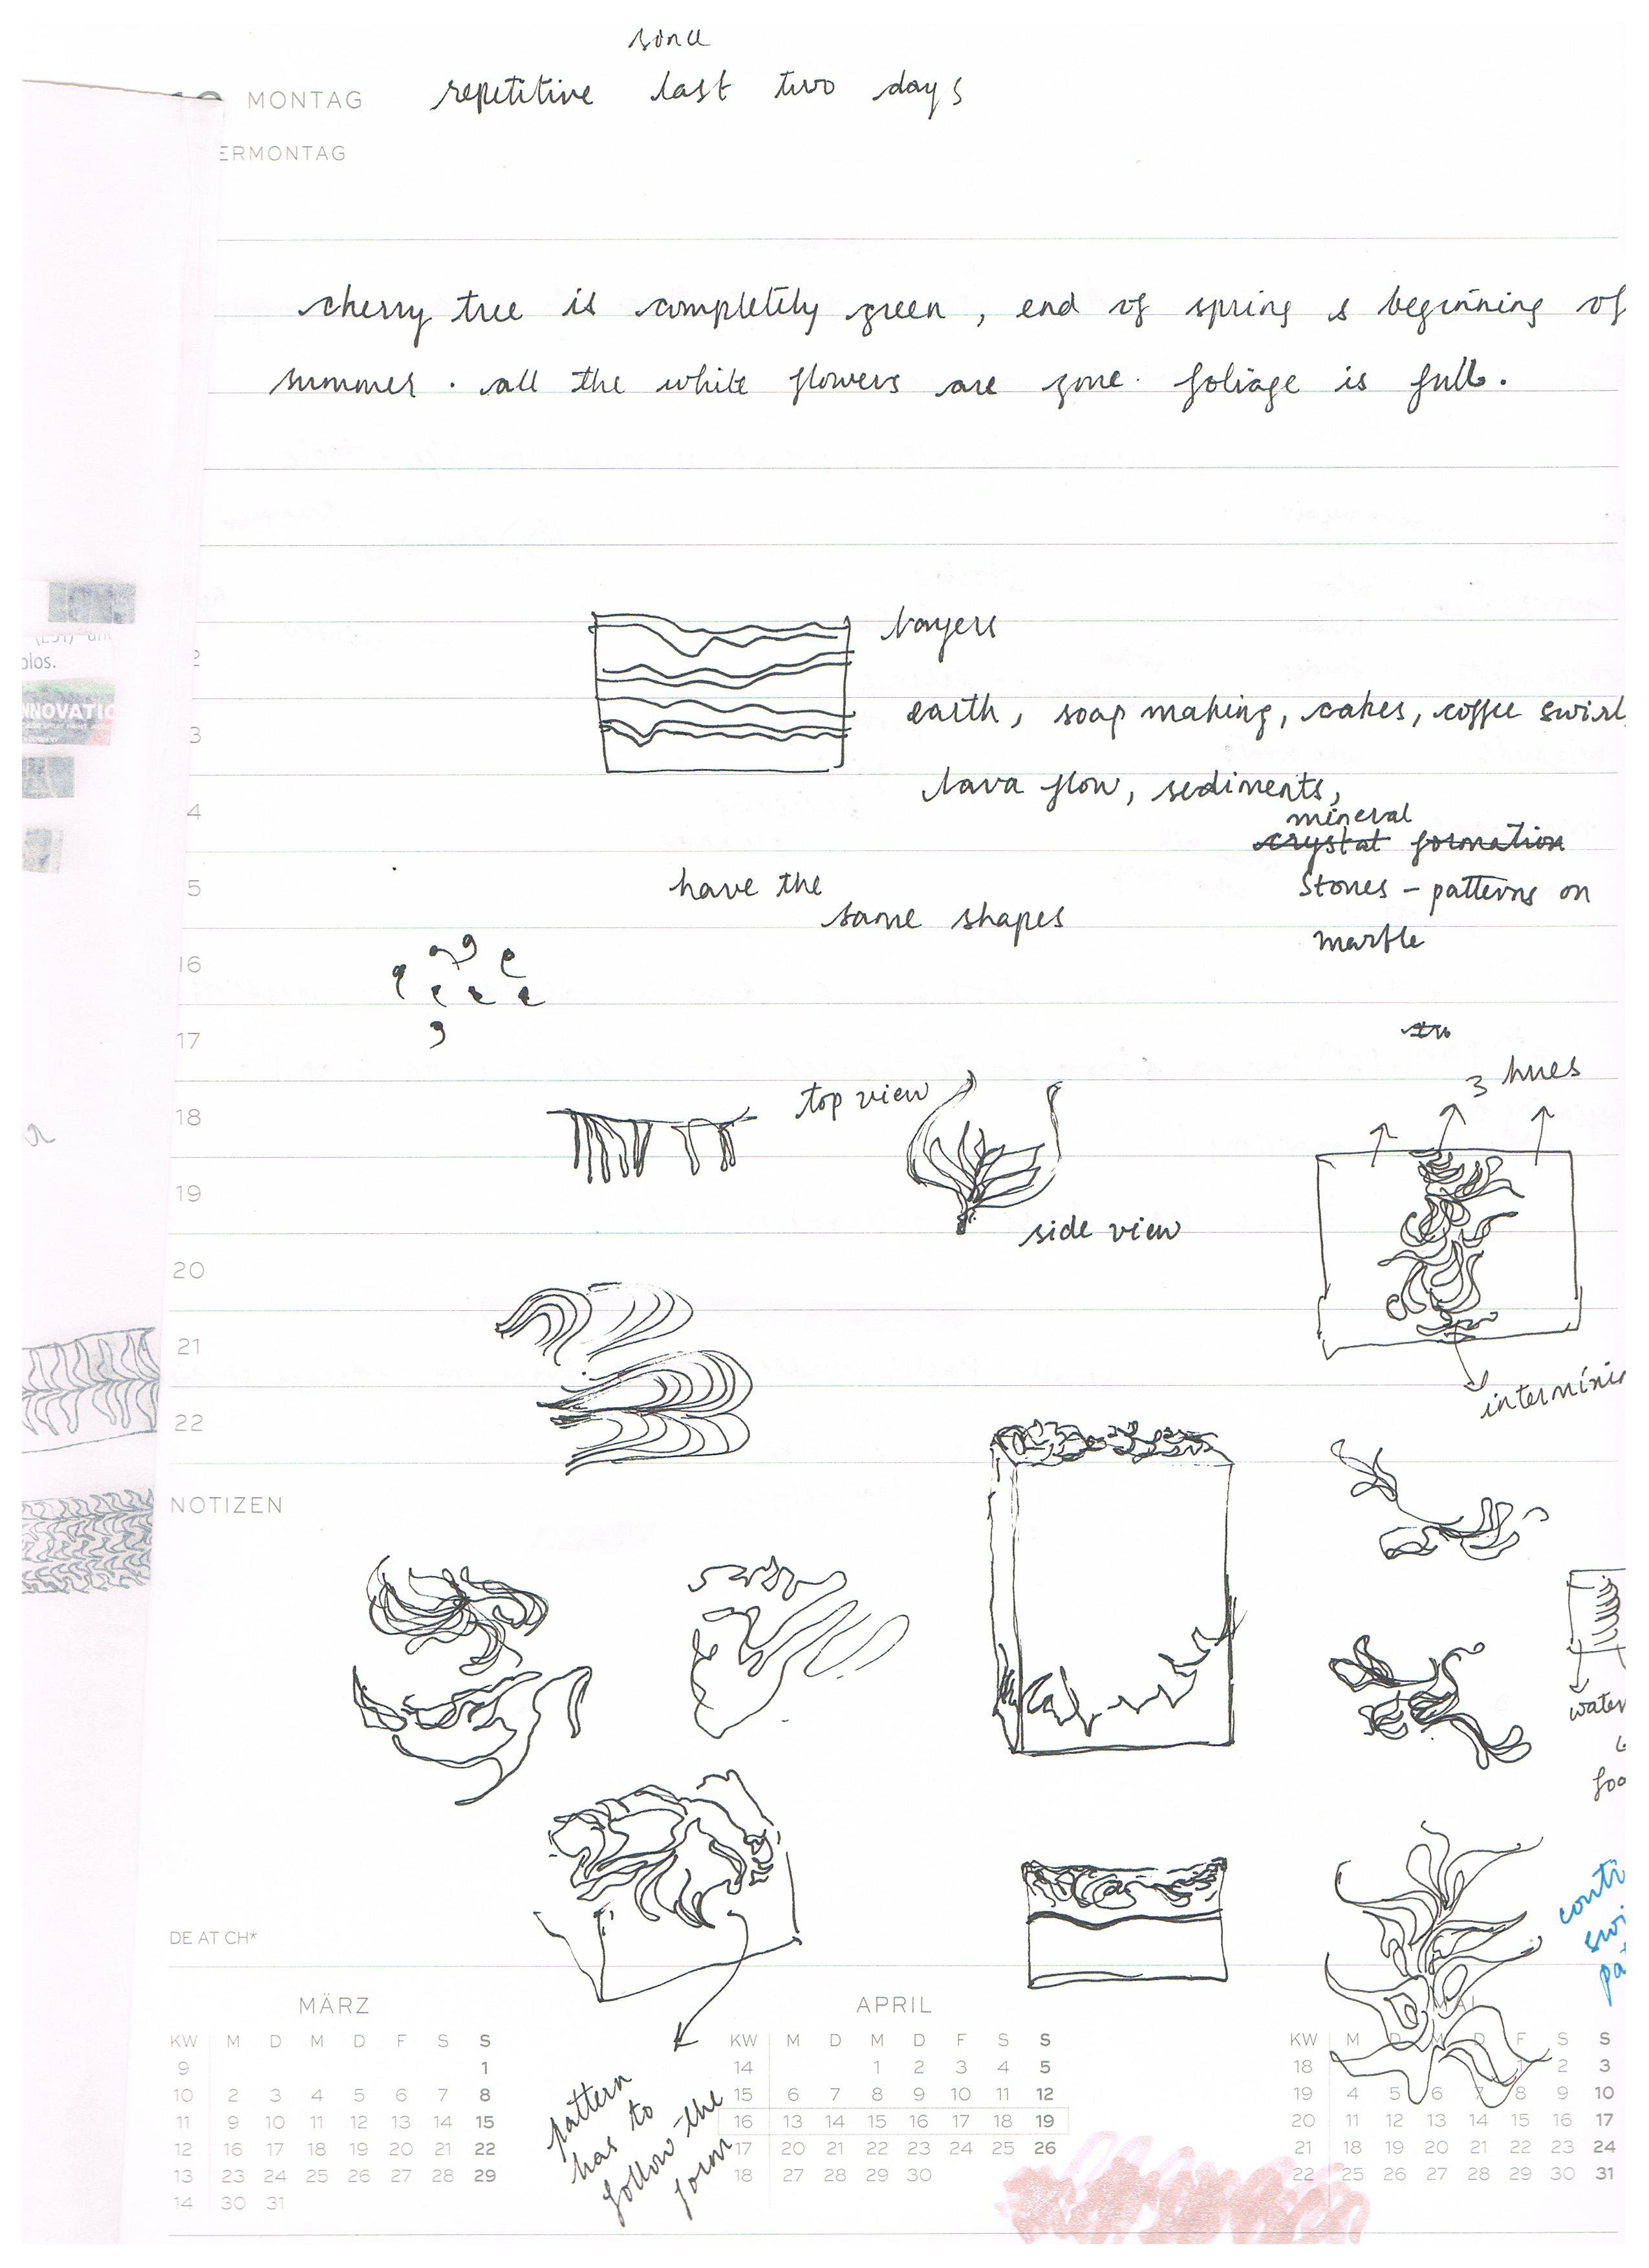 since
repetitive last two days
MONTAG
ERMONTAG
cherry tree is completely green, end of spring & beginning of
summer. all the white flowers are gone. foliage is full.
layers
earth, soap making, cakes, coffee swirl,
lava flow, sediments,
mineral
crystal formation
stones - patterns on
marble
have the
same shapes
(EST) an
olos.
NNOVATIO
2
3
4
5
16
17
18
19
20
21
22
3 hues
top view
side view
interminin
NOTIZEN
water
foo
conti
swi
pat
pattern
has to
follow the
form
DE AT CH*
MÄRZ
KW M D M D F S S
9 1
10 2 3 4 5 6 7 8
11 9 10 11 12 13 14 15
12 16 17 18 19 20 21 22
13 23 24 25 26 27 28 29
14 30 31
APRIL
KW M D M D F S S
14 1 2 3 4 5
15 6 7 8 9 10 11 12
16 13 14 15 16 17 18 19
17 20 21 22 23 24 25 26
18 27 28 29 30
MAI
KW M D M D F S S
18 1 2 3
19 4 5 6 7 8 9 10
20 11 12 13 14 15 16 17
21 18 19 20 21 22 23 24
22 25 26 27 28 29 30 31